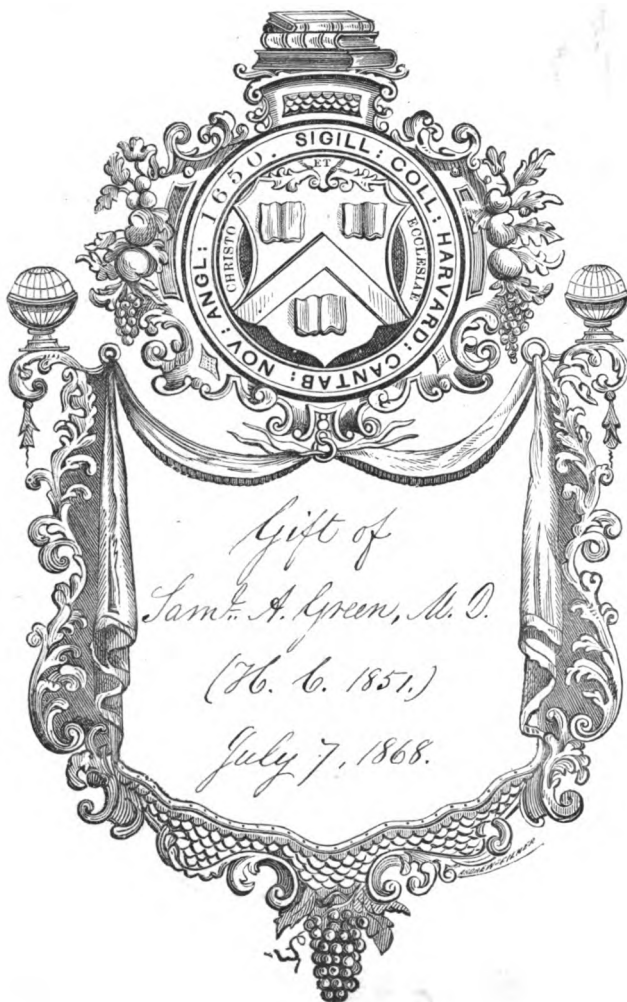 SIGILL : COLL : HARVARD : CANTAB : NOV : ANGL : 1650.
ET
CHRISTO
ECCLESIAE
Gift of
Saml. A. Green, M. D.
(H. C. 1851.)
July 7, 1868.